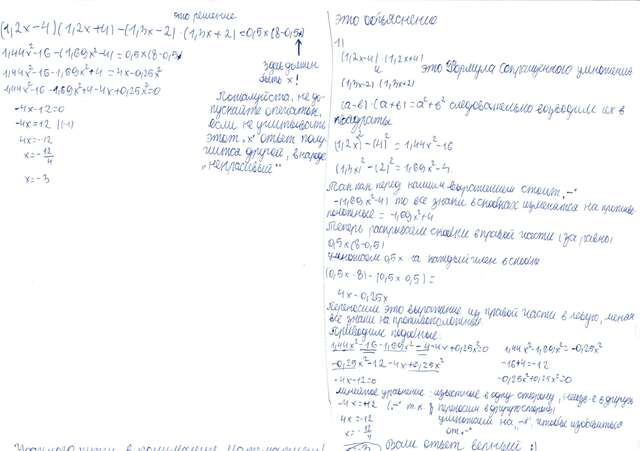 это решение
(1,2x-4)(1,2x+4)-(1,3x-2)·(1,3x+2)=0,5x(8-0,5x)
1,44x²-16-(1,69x²-4)=0,5x(8-0,5x)
1,44x²-16-1,69x²+4=4x-0,25x²
1,44x²-16-1,69x²+4-4x+0,25x²=0
-4x-12=0
-4x=12 |(-1)
4x=-12
x=-12/4
x=-3
Здесь должен
быть x!
Пожалуйста, не до-
пускайте опечаток,
если не учитывать
этот "x" ответ полу-
чится другой, в народе
"некрасивый"
это объяснение
1)
(1,2x-4)·(1,2x+4)
и это Формула Сокращенного умножения
(1,3x-2)·(1,3x+2)
(a-b)·(a+b)=a²+b² следовательно возводим их в
квадраты
(1,2x)²-(4)²=1,44x²-16
(1,3x)²-(2)²=1,69x²-4
Так как перед нашим выражением стоит "-"
-(1,69x²-4) то все знаки в скобках изменятся на противо-
положные = -1,69x²+4
Теперь раскрываем скобки в правой части (за равно)
0,5x(8-0,5)
умножаем 0,5x на каждый член в скобках
(0,5x·8)-(0,5x·0,5)=
4x-0,25x
Переносим это выражение из правой части в левую, меняя
все знаки на противоположные
Приводим подобные:
1,44x²-16-1,69x²-4-4x+0,25x²=0 1,44x²-1,69x²=-0,25x²
-0,25x²-12-4x+0,25x² -16+4=-12
-4x-12=0 -0,25x²+0,25x²=0
линейное уравнение - известные в одну сторону, в другую
-4x=+12 т.к. переносим в другую сторону
4x=-12 умножаем на "-", чтобы избавиться
x=-12/4 от "-"
Ваш ответ верный :)